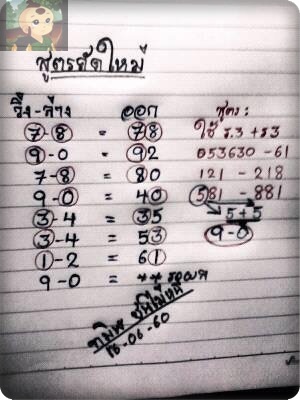 สูตรคัดใหม่
วิ่ง-ล่าง ออก
7-8 = 78
9-0 = 92
7-8 = 80
9-0 = 40
3-4 = 35
3-4 = 53
1-2 = 61
9-0 = ** รอผล
16-06-60
สูตร :
ใช้ ร.3 + ร3
053630 - 61
121 - 218
581 - 881
5+5
9-0